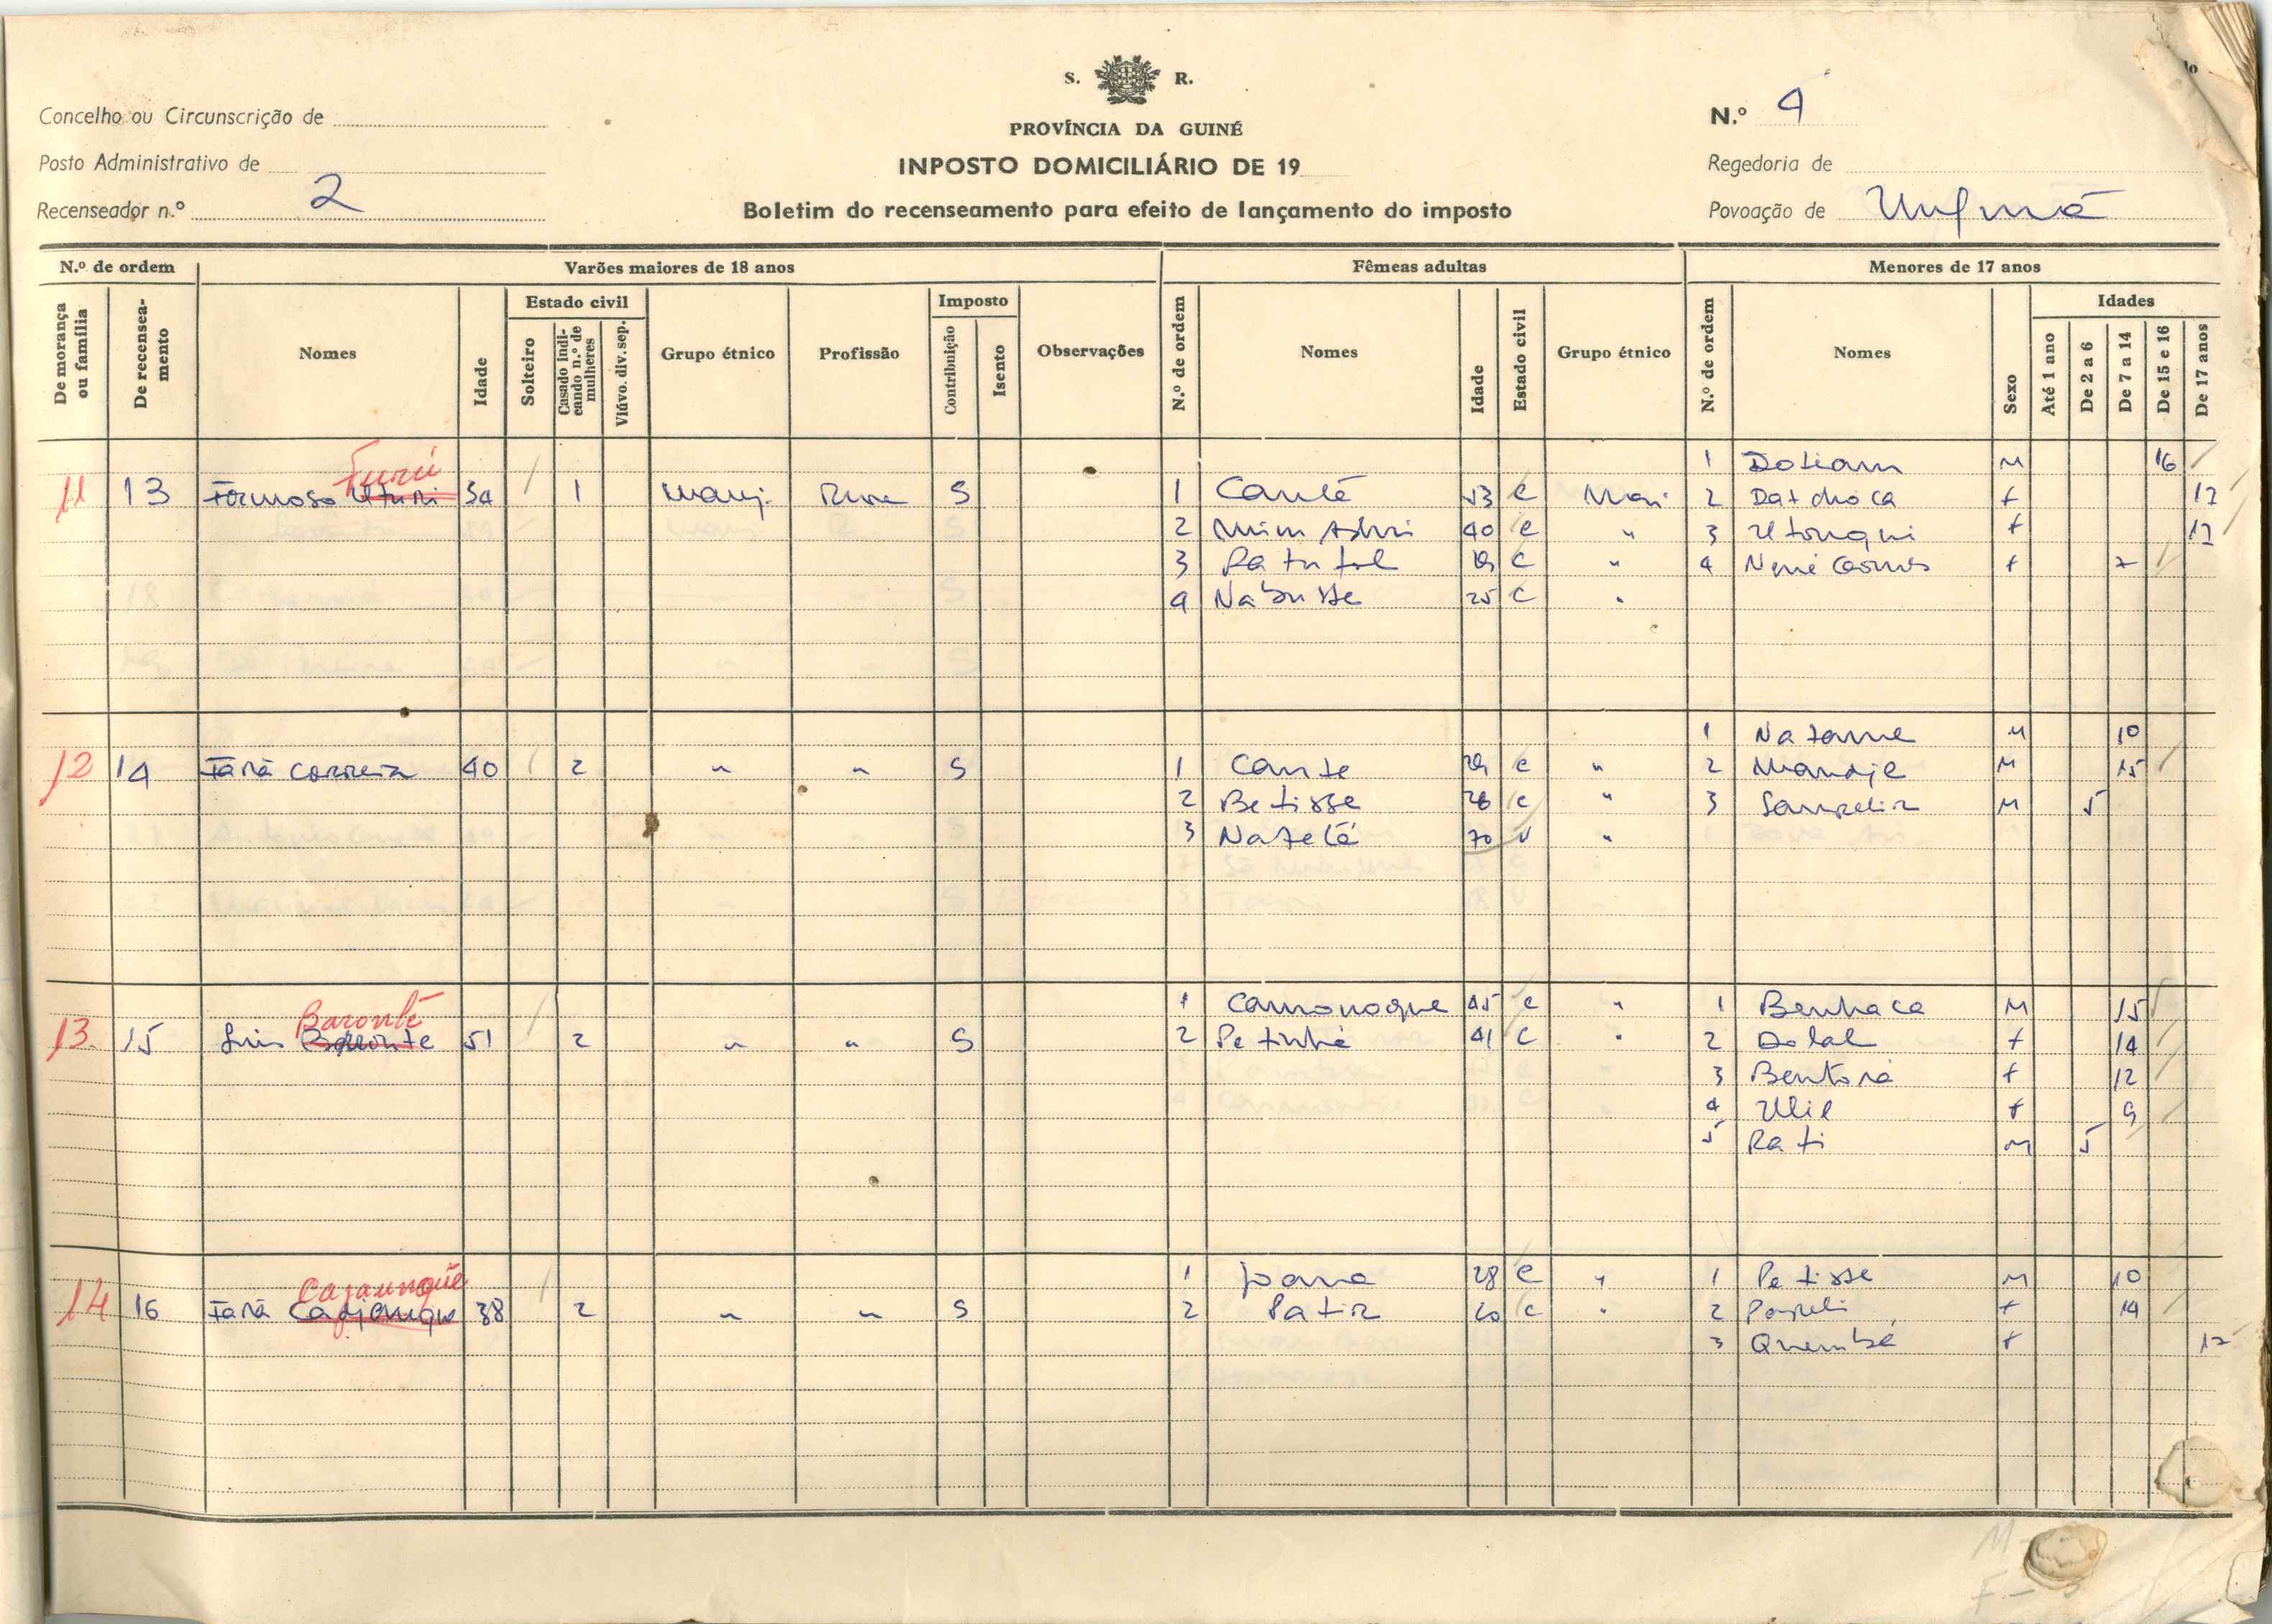 S. R.
PROVÍNCIA DA GUINÉ
INPOSTO DOMICILIÁRIO DE 19
Boletim do recenseamento para efeito de lançamento do imposto
Concelho ou Circunscrição de
Posto Administrativo de
Recenseador n.º 2
N.º 4
Regedoria de
Povoação de
N.º de ordem Varões maiores de 18 anos Fêmeas adultas Menores de 17 anos
De morança ou família
De recensea-mento
Nomes
Idade
Estado civil
Solteiro
Casado indi-cando n.º de mulheres
Viúvo. div. sep.
Grupo étnico
Profissão
Imposto
Contribuição
Isento
Observações
N.º de ordem
Nomes
Idade
Estado civil
Grupo étnico
N.º de ordem
Nomes
Sexo
Idades
Até 1 ano
De 2 a 6
De 7 a 14
De 15 e 16
De 17 anos
1 Dotiam M 16
Furú
11 13 Formoso 54 1 Manj. S 1 Canté 53 C 2 Datchoca f 17
2 40 C " 3 Utonqui f 17
3 19 C " 4 f 7
4 Nabusse 25 C "
1 Natame M 10
12 14 Iará Correia 40 2 " " S 1 Cante 29 C " 2 Mandje M 15
2 Betisse 28 C " 3 M 5
3 Natelé 70 V "
Baronté
1 Camonoque 45 C " 1 Benhaca M 15
13 15 Luis Baronte 51 2 " " S 2 Petinhé 41 C " 2 Dolal f 14
3 Bentorá f 12
4 Ulil f 9
5 Rati M 5
Cajaunqúe
1 Joana 28 C " 1 Petisse M 10
14 16 Iará 38 2 " " S 2 Patir 20 C " 2 f 14
3 Quembé f 17
M-
F-